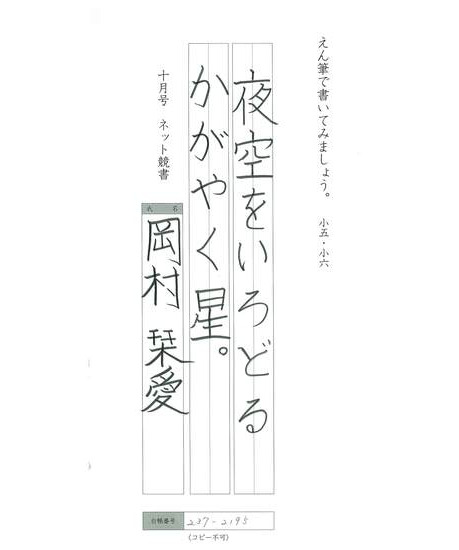 えん筆で書いてみましょう。 小五・小六
夜空をいろどる
かがやく星。
十月号 ネット競書
氏名
岡村 栞愛
台帳番号 237-2195
(コピー不可)